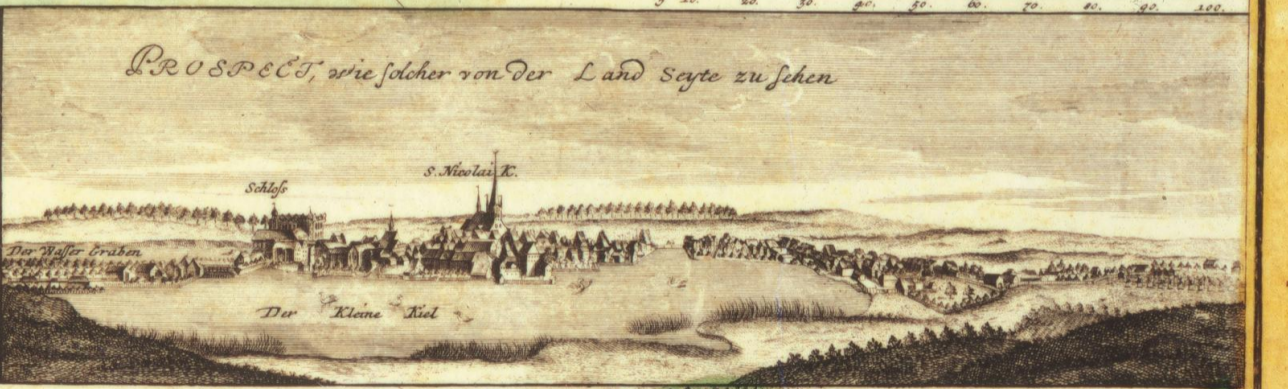 5 10. 20. 30. 40. 50. 60. 70. 80. 90. 100.
PROSPECT, wie solcher von der Land Seyte zu sehen
S. Nicolai K.
Schloss
Der Wasser Graben
Der Kleine Kiel